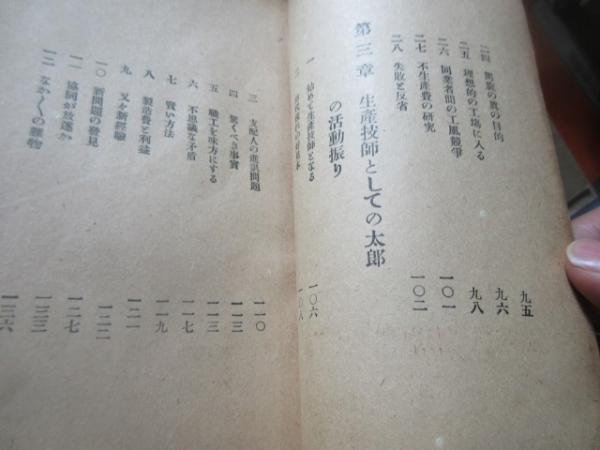 二四 𠮷
二五 理想的の工場に入る 九六
二六 同業者間の工風競爭 九八
二七 不生産費の研究 一〇一
二八 失敗と反省 一〇二
第三章 生産技師としての太郎
の活動振り
一 始めて生産技師となる 一〇六
三 支配人の進退問題 一一〇
四 驚くべき事實 一一三
五 職工を味方にする 一一三
六 不思議な矛盾 一一七
七 賢い方法 一一九
八 製造費と利益 一二一
九 又々新經驗 一二三
一〇 新問題の發見 一二七
一一 協同が放漫か 一三三
一二 なか〱の難物 一三六